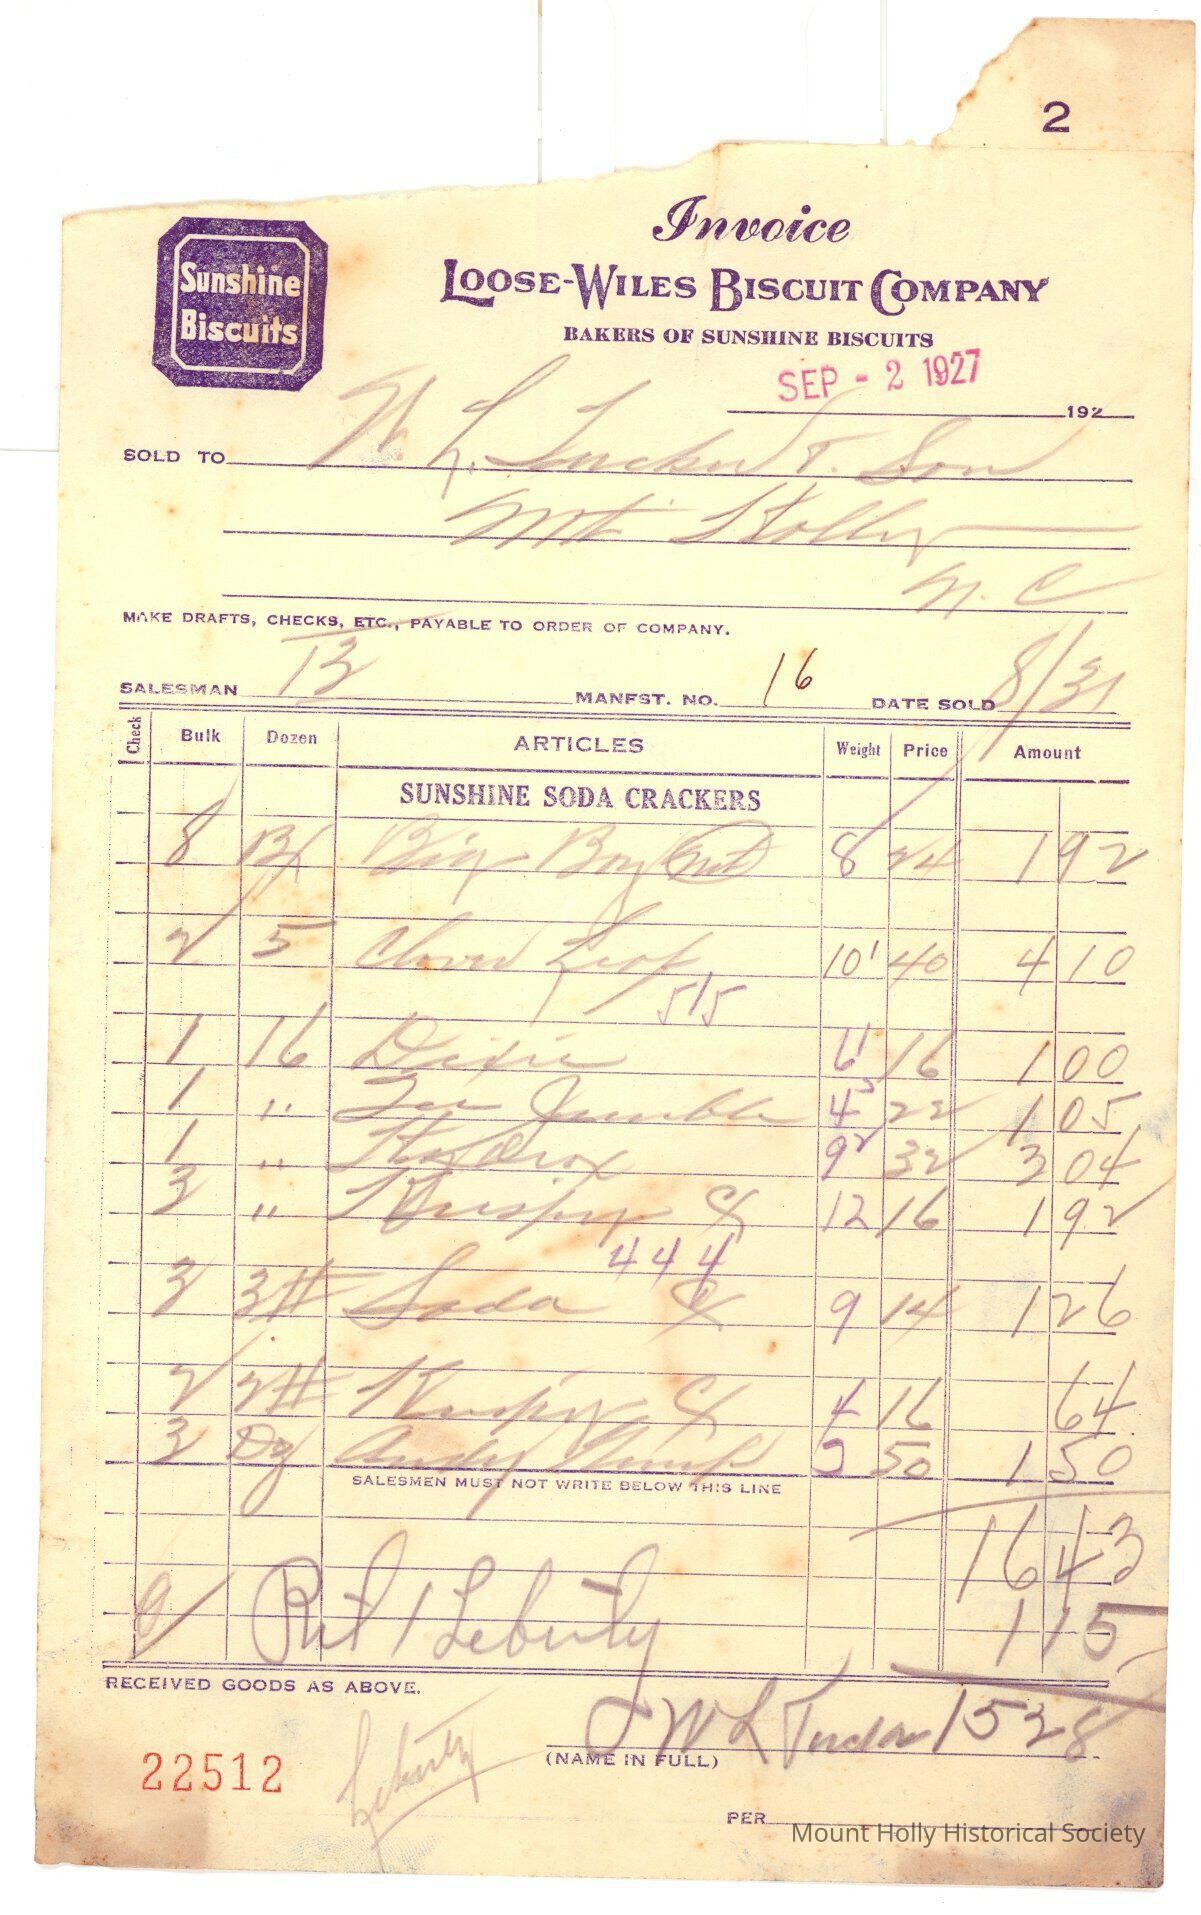 2
Invoice
Sunshine Biscuits
LOOSE-WILES BISCUIT COMPANY
BAKERS OF SUNSHINE BISCUITS
SEP - 2 1927
192
SOLD TO W. L. Tucker & Son
Mt Holly
N. C
MAKE DRAFTS, CHECKS, ETC., PAYABLE TO ORDER OF COMPANY.
SALESMAN 13 MANFST. NO. 16 DATE SOLD 8/31
Check Bulk Dozen ARTICLES Weight Price Amount
SUNSHINE SODA CRACKERS
8 Bx Big Boy 8 24 1 92
2 5 Clover Leaf 10' 40 4 10
515
1 16 Dixie 6' 16 1 00
1 " Jumble 4 22 1 05
1 " Hydrox 9 32 3 04
3 " Krispy Cx 12 16 1 92
444
3 3# Soda Cx 9 14 1 26
2 2# Krispy Cx 4 16 64
3 Dz Andy Gump 50 1 50
SALESMEN MUST NOT WRITE BELOW THIS LINE
16 43
Ret 1 Leburty 1 15
RECEIVED GOODS AS ABOVE.
W L Tucker 15 28
(NAME IN FULL)
22512
PER
Mount Holly Historical Society